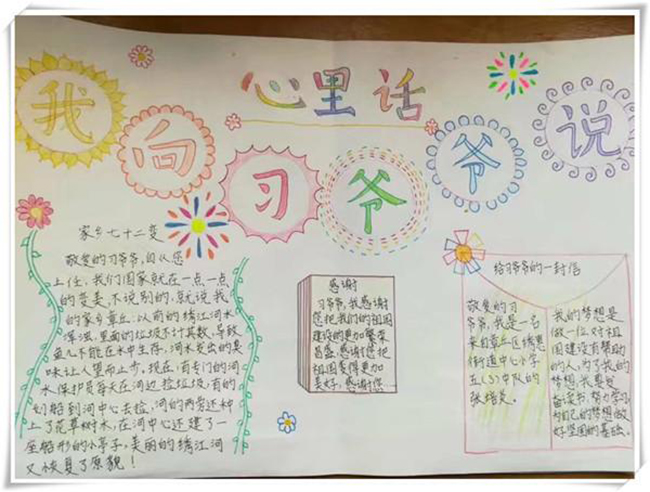 心里话
我向习爷爷说
家乡七十二变
敬爱的习爷爷,自从您
上任,我们国家就在一点一点
的变美,不说别的,就说我
的家乡章丘:以前的绣江河水
浑浊,里面的垃圾不计其数,导致
鱼儿不能在水中生存,河水发出的臭
味让人望而止步,现在,有专门的河
水保护员每天在河边捡垃圾,有的
划船到河中心去捡,河的两旁还种
上了花草树木,在河中心还建了一
座船形的小亭子,美丽的绣江河
又恢复了原貌!
感谢
习爷爷,我感谢
您把我们的祖国
建设的更加繁荣
昌盛,感谢您把
祖国变得更加
美好,感谢您…
给习爷爷的一封信
敬爱的习
爷爷,我是一名
来自章丘区绣惠
街道中心小学
五(3)中队的
张
我的梦想是
做一位对祖
国建设有帮助
的人,为了我的
梦想,我要
备读书,努力学习
为自己的梦想做
好坚固的基础。